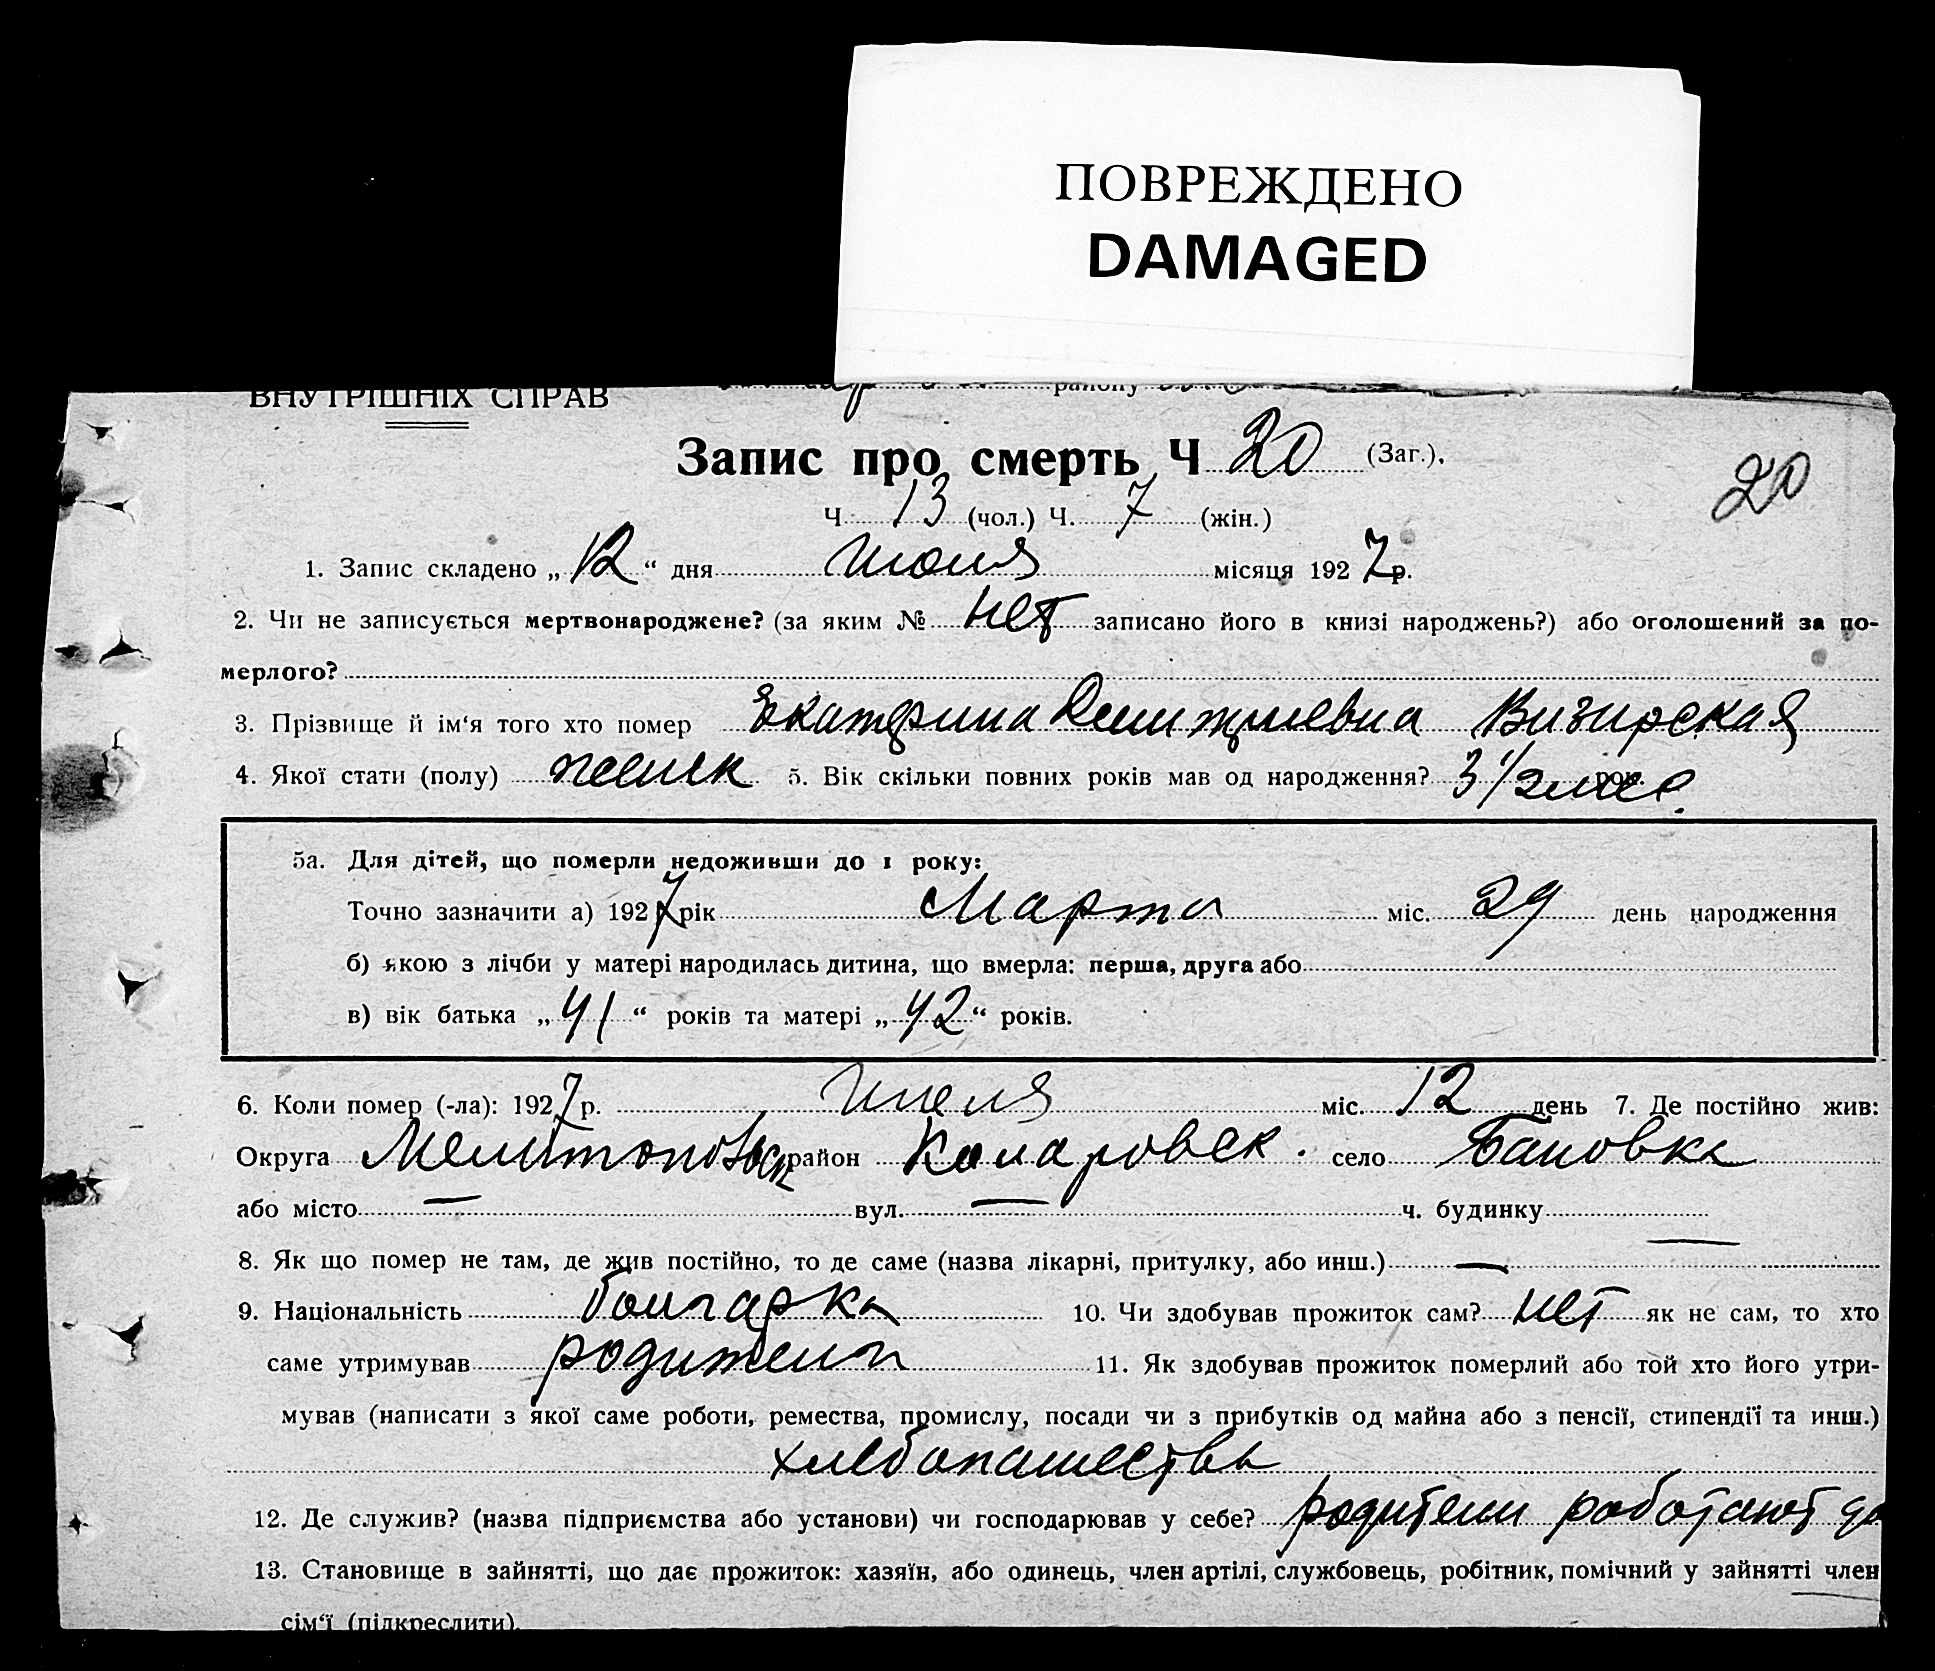 ПОВРЕЖДЕНО
DAMAGED
ВНУТРІШНІХ СПРАВ району
Запис про смерть Ч 20 (Заг.).
20
Ч. 13 (чол.) Ч. 7 (жін.)
1. Запис складено „12“ дня июля місяця 1927 р.
2. Чи не записується мертвонароджене? (за яким № нет записано його в книзі народжень?) або оголошений за по-
мерлого?
3. Прізвище й ім‘я того хто помер Екатерина Дмитриевна Визирская
4. Якої стати (полу) женск 5. Вік скільки повних років мав од народження? 3 1/2 мес. рок.
5а. Для дітей, що померли недоживши до 1 року:
Точно зазначити а) 1927 рік Марта міс. 29 день народження
б) якою з лічби у матері народилась дитина, що вмерла: перша, друга або
в) вік батька „41“ років та матері „42“ років.
6. Коли помер (-ла): 1927 р. Июля міс. 12 день 7. Де постійно жив:
Округа Мелитопольск район Коларовск. село Бановка
або місто — вул. — ч. будинку —
8. Як що помер не там, де жив постійно, то де саме (назва лікарні, притулку, або инш.) —
9. Національність болгарка 10. Чи здобував прожиток сам? нет як не сам, то хто
саме утримував родители 11. Як здобував прожиток померлий або той хто його утри-
мував (написати з якої саме роботи, ремества, промислу, посади чи з прибутків од майна або з пенсії, стипендії та инш.)
хлебопашества
12. Де служив? (назва підприємства або установи) чи господарював у себе? родители работают до
13. Становище в зайнятті, що дає прожиток: хазяїн, або одинець, член артілі, службовець, робітник, помічний у зайнятті член
сім‘ї (підкреслити).